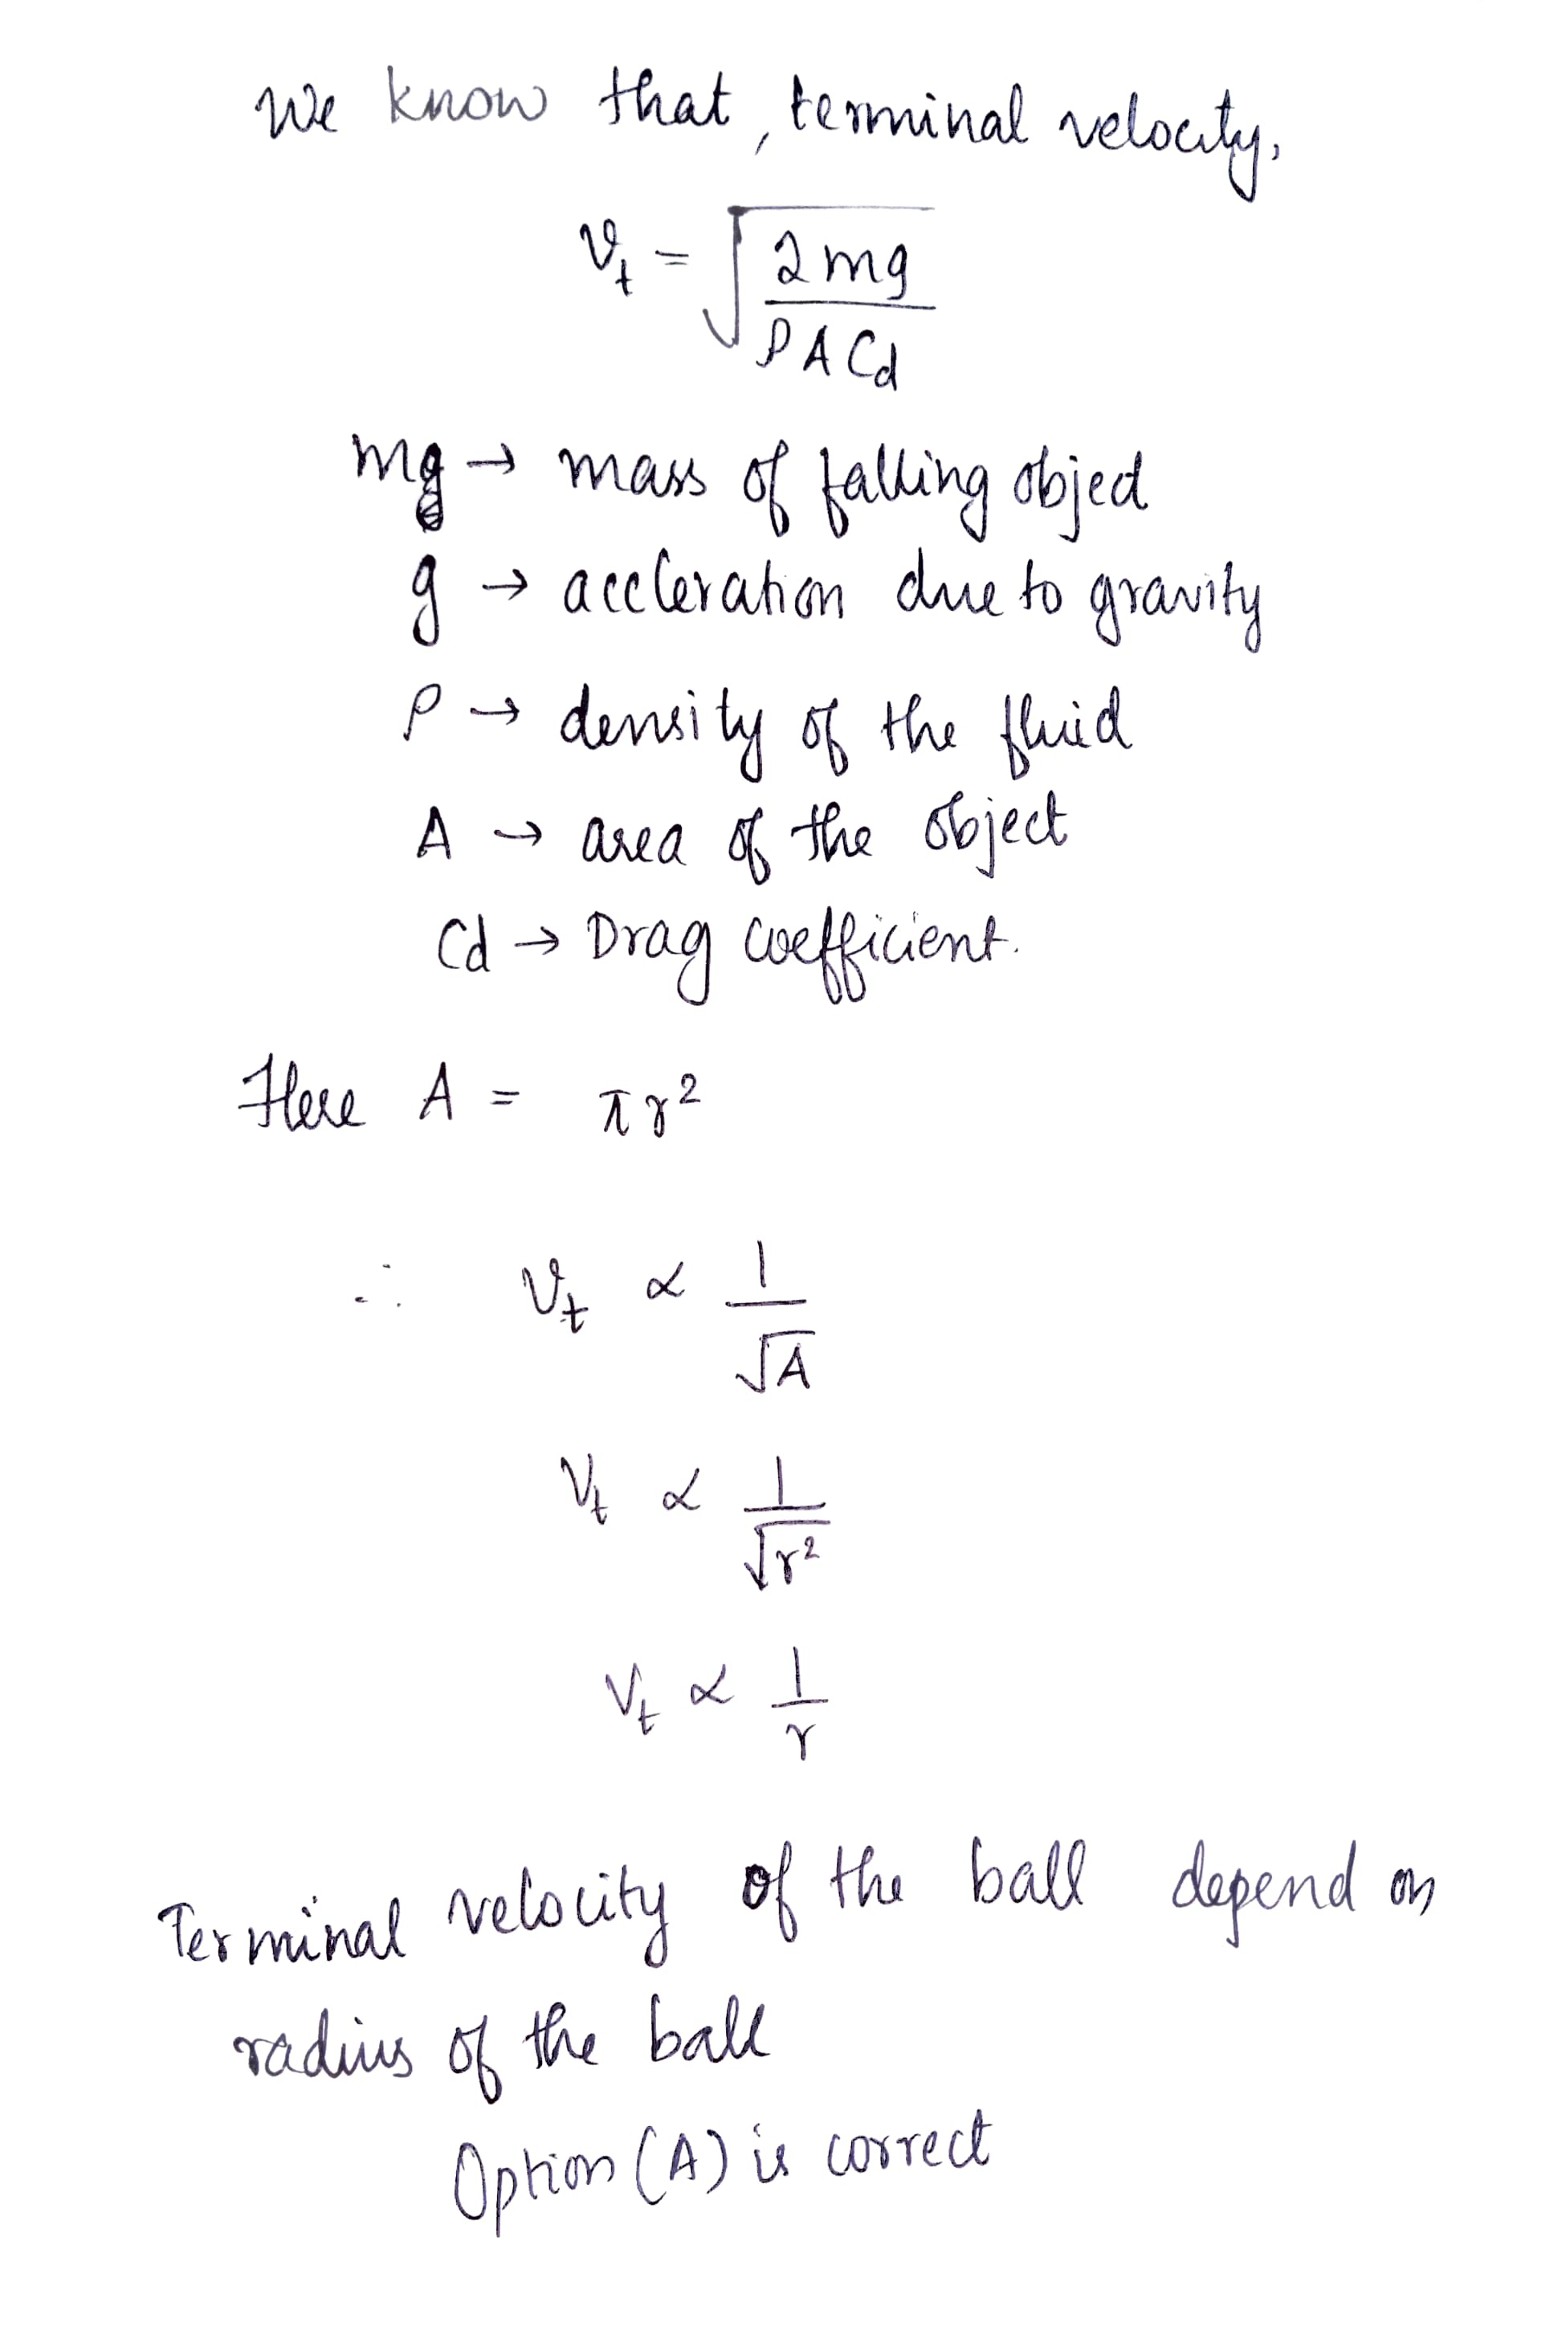 We know that, terminal velocity,
V_t = √(2mg / ρACd)
mg → mass of falling object
g → accleration due to gravity
ρ → density of the fluid
A → area of the object
Cd → Drag coefficient.
Here A = πr²
∴ V_t ∝ 1/√A
V_t ∝ 1/√r²
V_t ∝ 1/r
Terminal velocity of the ball depend on
radius of the ball
Option (A) is correct